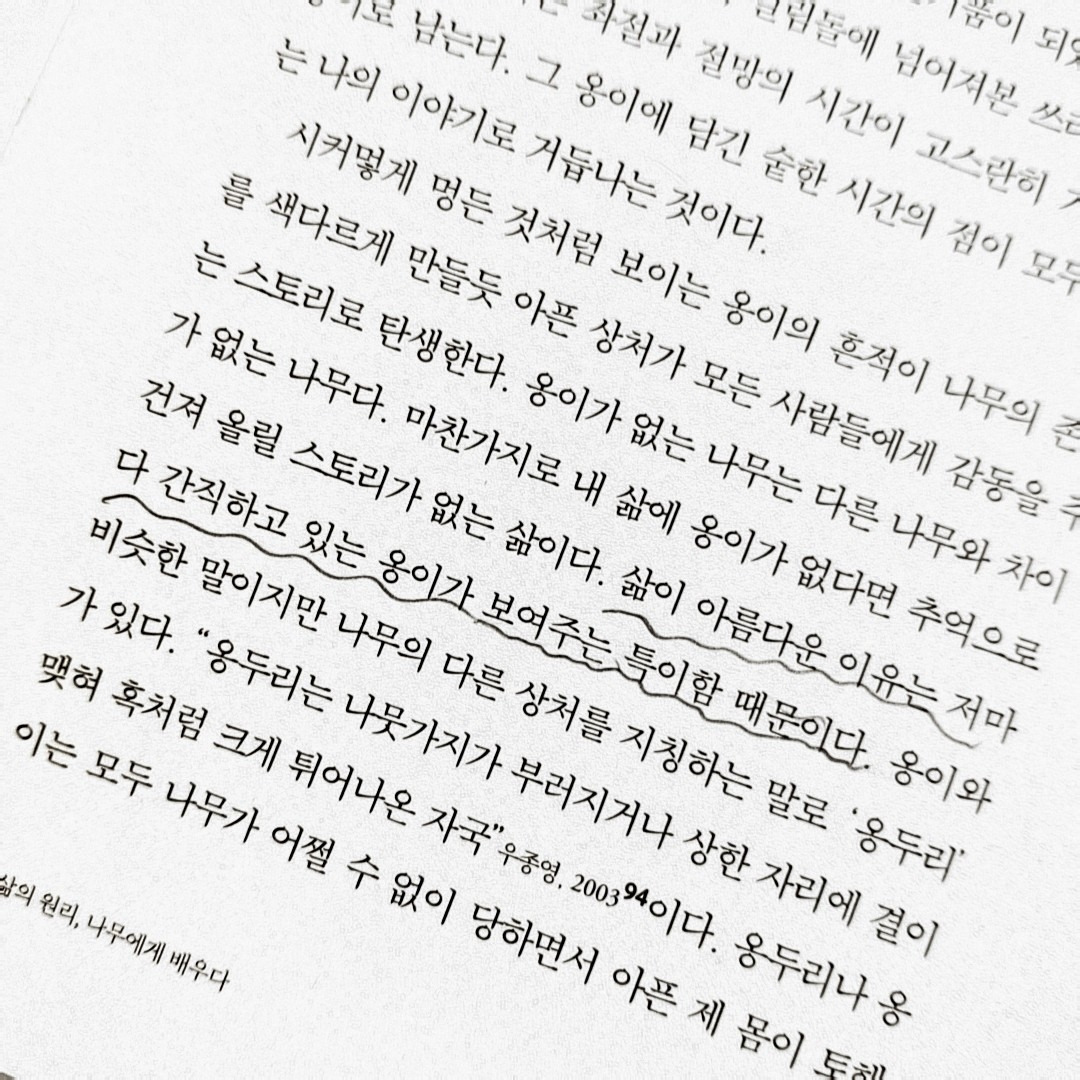 품이 되었
걸림돌에 넘어져본
좌절과 절망의 시간이 고스란히
남는다. 그 옹이에 담긴 숱한 시간의 점이 모두
는 나의 이야기로 거듭나는 것이다.
시커멓게 멍든 것처럼 보이는 옹이의 흔적이 나무의 존
를 색다르게 만들듯 아픈 상처가 모든 사람들에게 감동을 주
는 스토리로 탄생한다. 옹이가 없는 나무는 다른 나무와 차이
가 없는 나무다. 마찬가지로 내 삶에 옹이가 없다면 추억으로
건져 올릴 스토리가 없는 삶이다. 삶이 아름다운 이유는 저마
다 간직하고 있는 옹이가 보여주는 특이함 때문이다. 옹이와
비슷한 말이지만 나무의 다른 상처를 지칭하는 말로 ‘옹두리’
가 있다. “옹두리는 나뭇가지가 부러지거나 상한 자리에 결이
맺혀 혹처럼 크게 튀어나온 자국”우종영, 2003 94이다. 옹두리나 옹
이는 모두 나무가 어쩔 수 없이 당하면서 아픈 제 몸이
삶의 원리, 나무에게 배우다